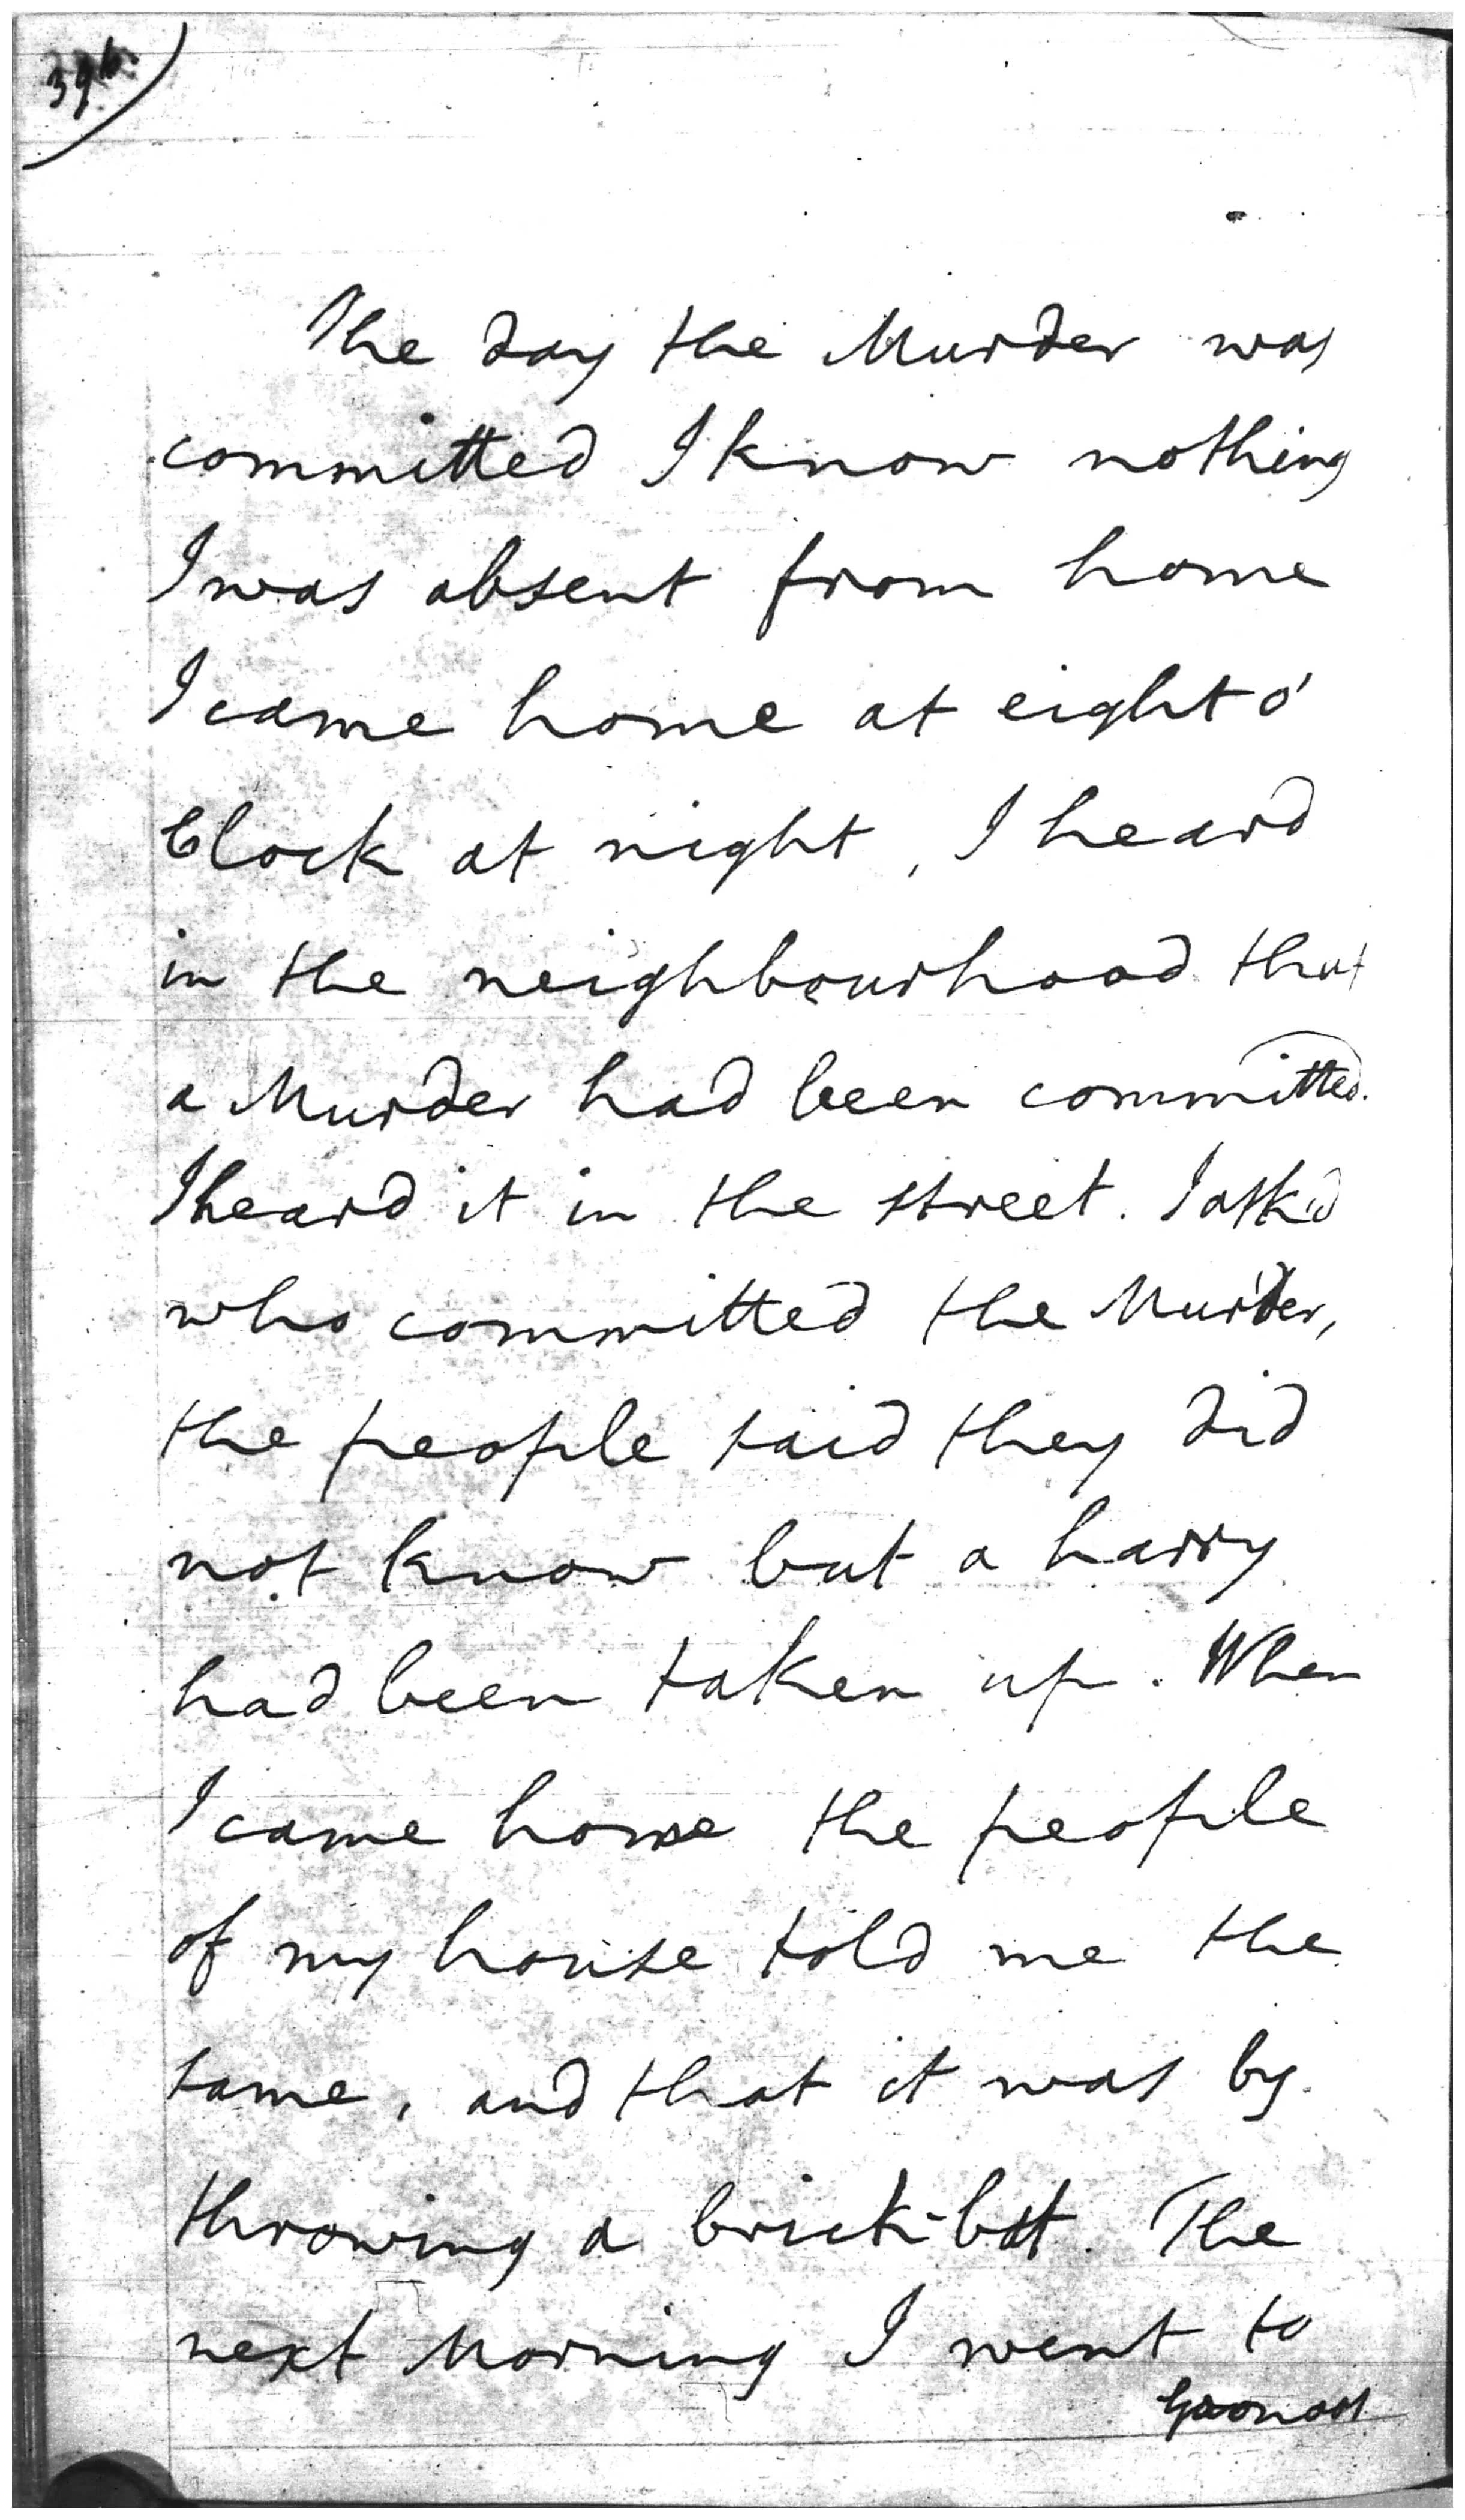 396.
The day the Murder was
committed I know nothing
I was absent from home
I came home at eight o'
Clock at night, I heard
in the neighbourhood that
a Murder had been committed.
I heard it in the street. I ask'd
who committed the Murder,
the people said they did
not know but a harry
had been taken up. When
I came home the people
of my house told me the
same, and that it was by
throwing a brick-bat. The
next Morning I went to